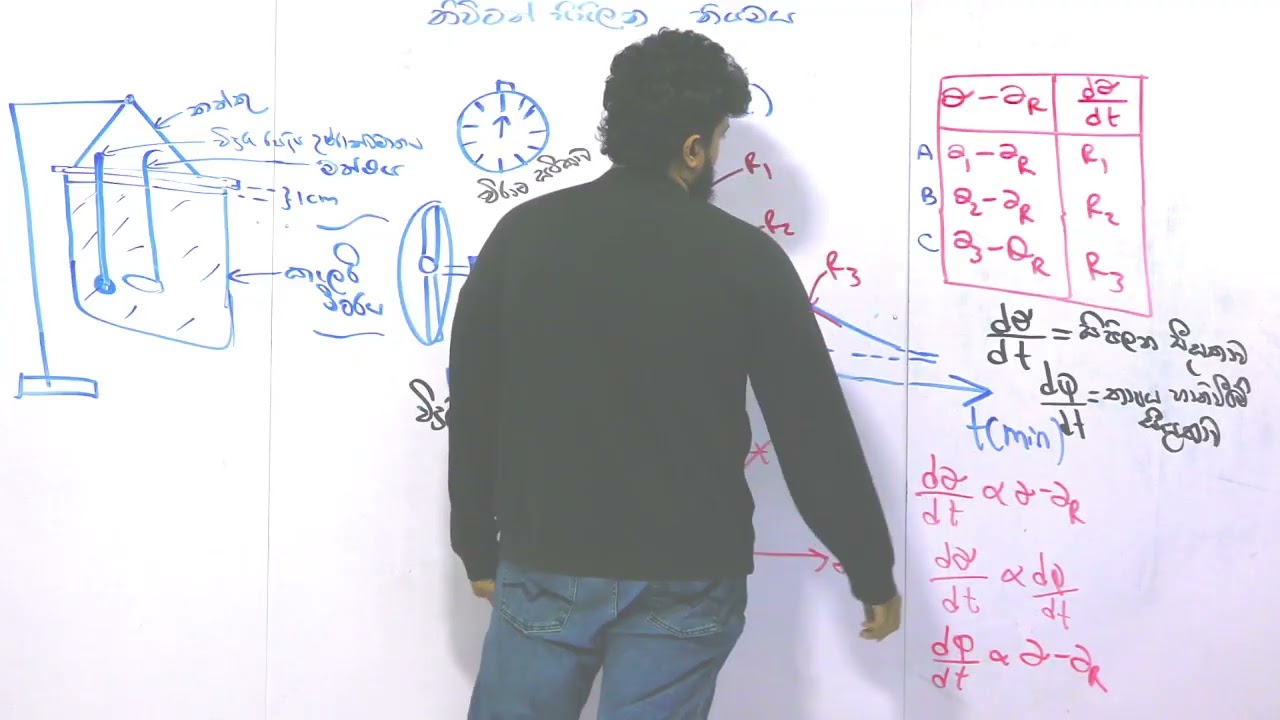 නිව්ටන් සිසිලන නියමය
තන්තු
මන්ථය
}1cm
විරාම ඝටිකාව
R₁
R₂
R₃
t(min)
θ - θR dθ/dt
A θ₁ - θR R₁
B θ₂ - θR R₂
C θ₃ - θR R₃
dθ/dt = සිසිලන සීඝ්‍රතාව
dφ/dt = තාපය හානිවීමේ සීඝ්‍රතාව
dθ/dt ∝ θ - θR
dθ/dt ∝ dφ/dt
dφ/dt ∝ θ - θR